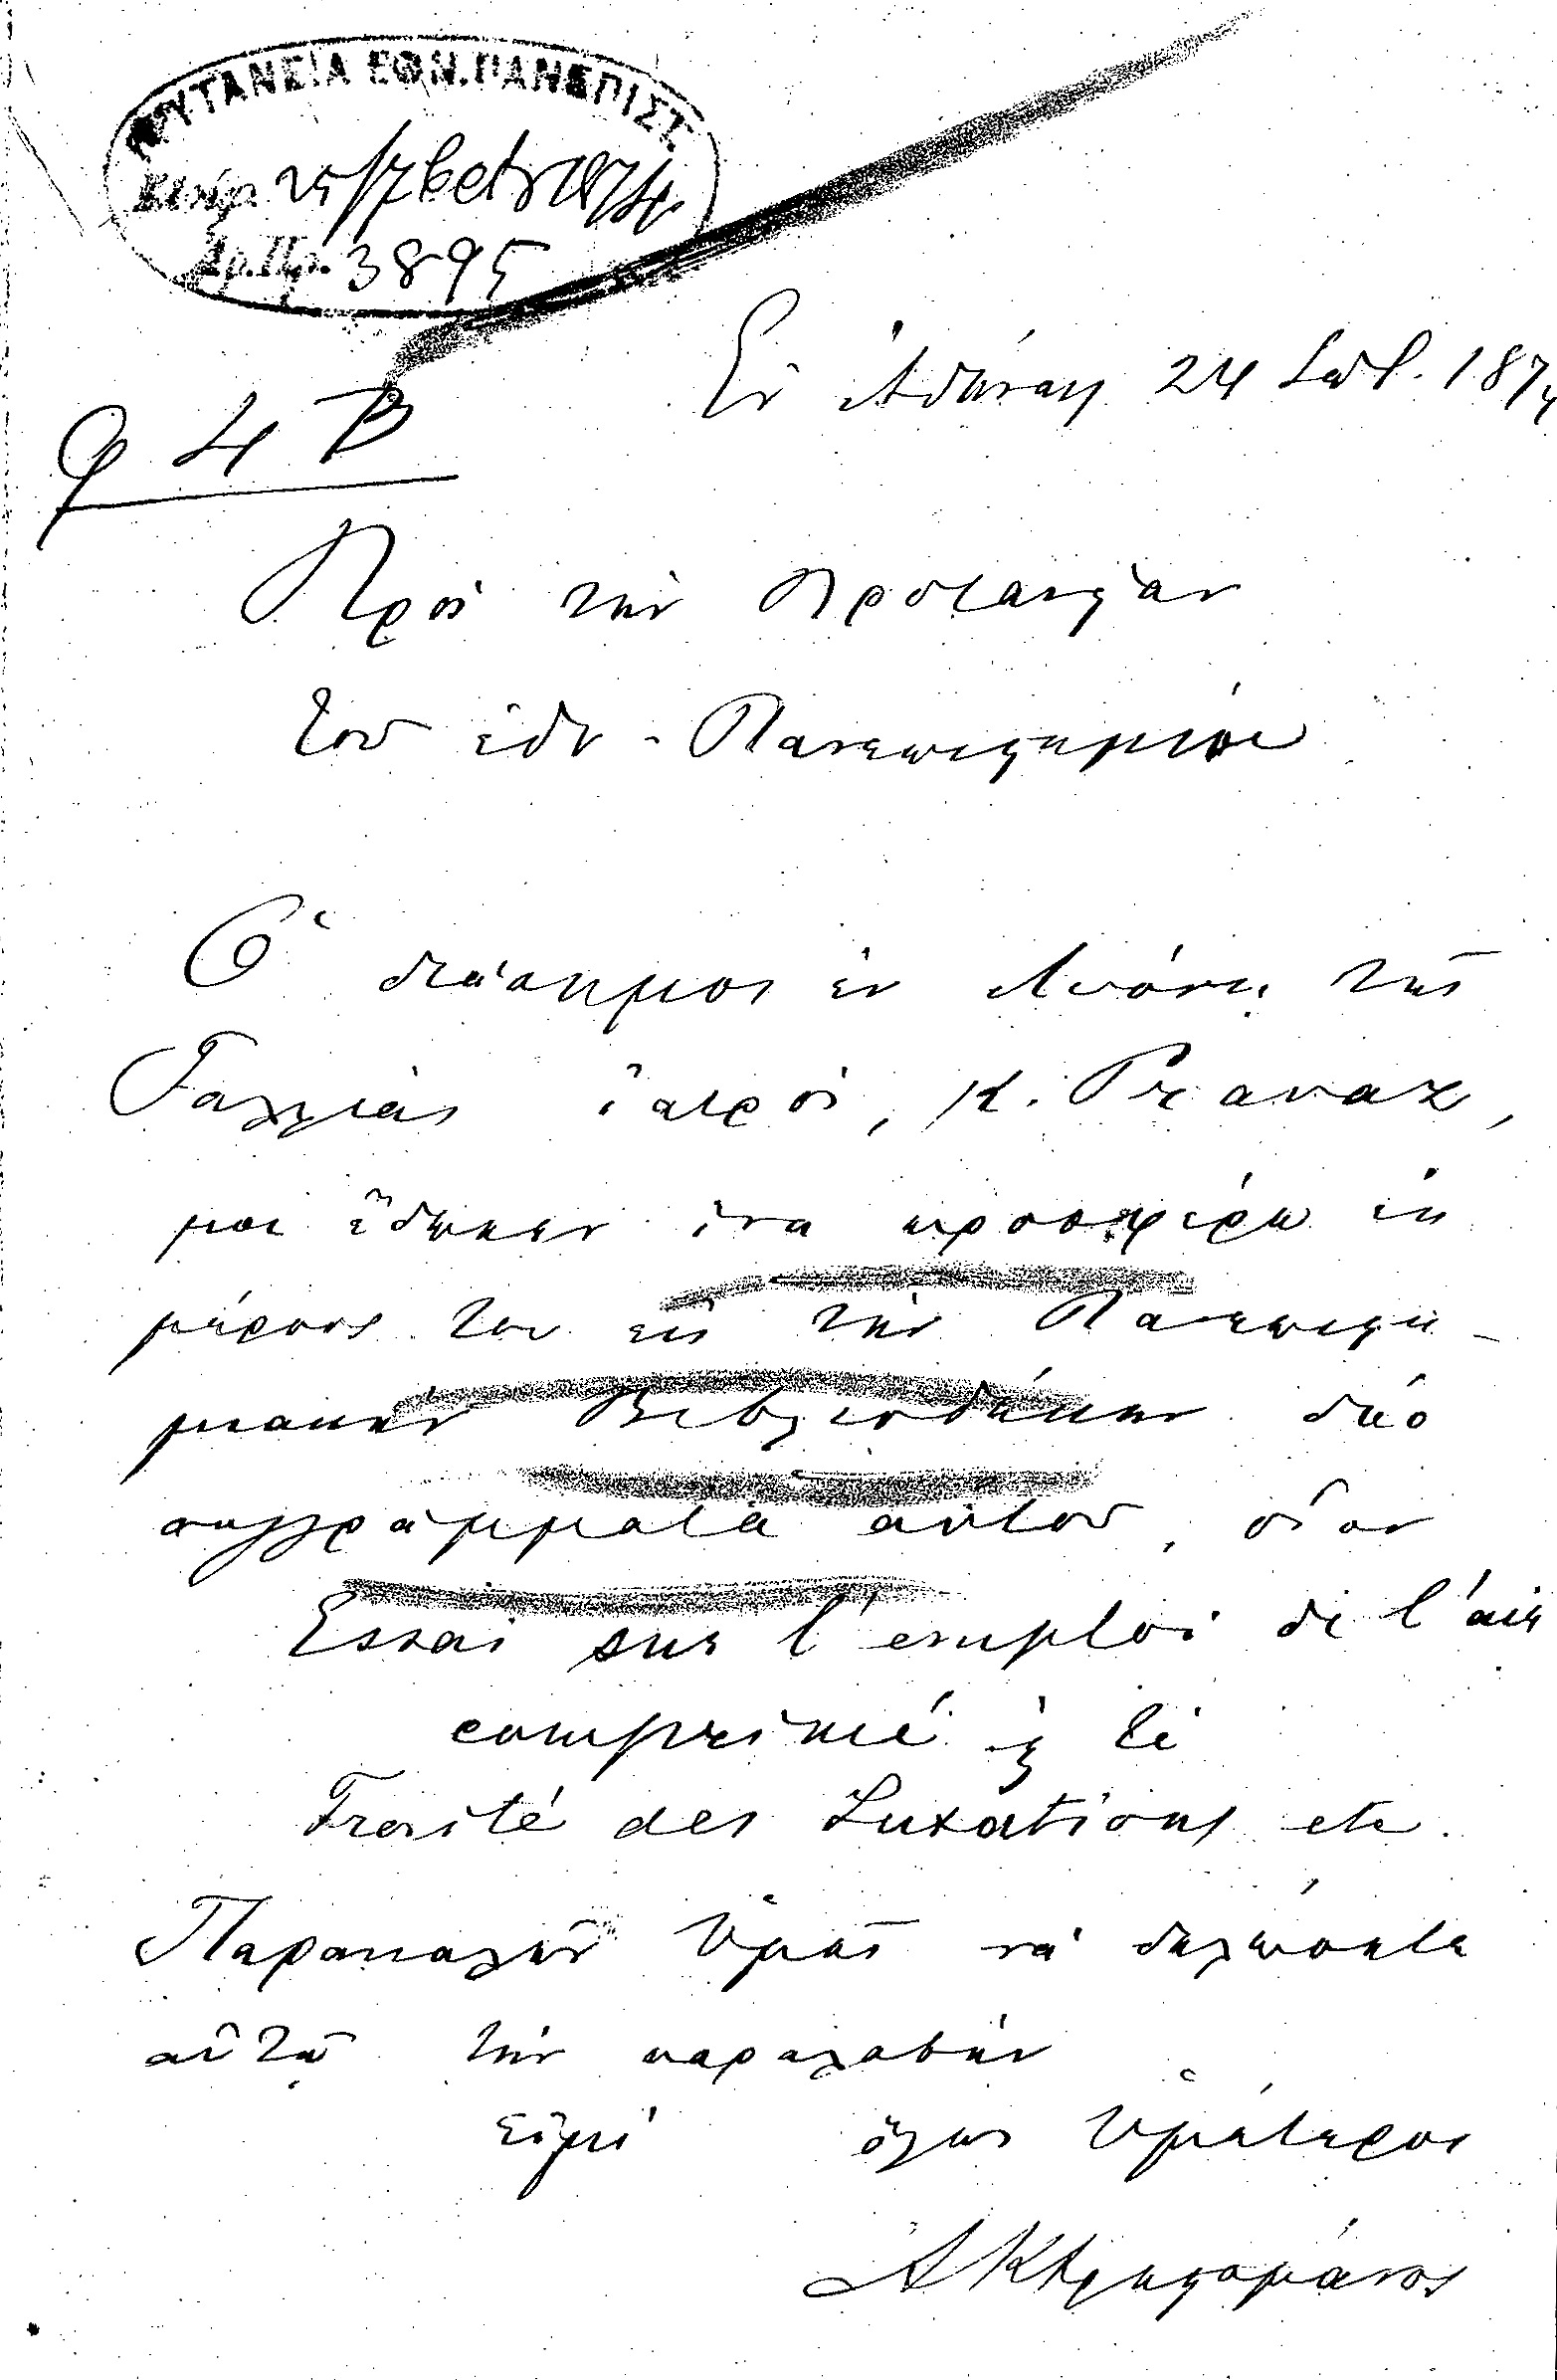 ΠΡΥΤΑΝΕΙΑ ΕΘΝ. ΠΑΝΕΠΙΣΤ.
Εἰσήχ. 25/7βρ 187
Ἀρ. Πρ. 3895
Ἐν Ἀθήναις 24 187
Φ 4 Β
Πρὸς τὴν Πρυτανείαν
τοῦ ἐθν. Πανεπιστημίου
Ὁ διάσημος ἐν Λυόνῃ τῆς
Γαλλίας ἰατρός, Κ. Pravaz,
μοι ἔδωκεν ἵνα προσφέρω ἐκ
μέρους του εἰς τὴν Πανεπιστη-
μιακὴν Βιβλιοθήκην δύο
συγγράμματα αὐτοῦ, οἷον
Essai sur l'emploi de l'air
comprimé ϗ τὸ
Traité des Luxations etc.
Παρακαλῶ Ὑμᾶς νὰ δηλώσητε
αὐτῷ τὴν παραλαβήν
εἰμὶ ὅλως Ὑμέτερος
ΑΚ